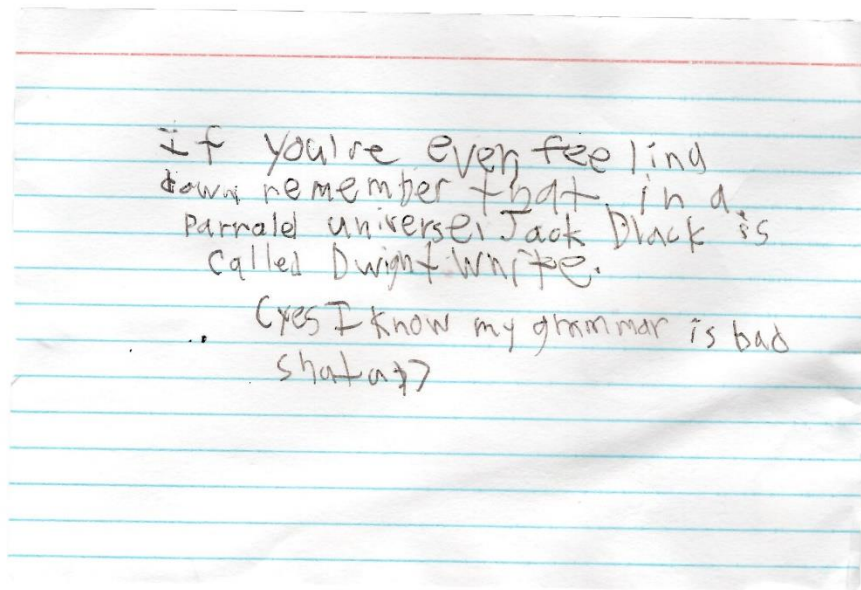 If you're ever feeling
down remember that in a
Parralel universe, Jack Black is
called Dwight White.
(yes I know my grammar is bad
shatap)